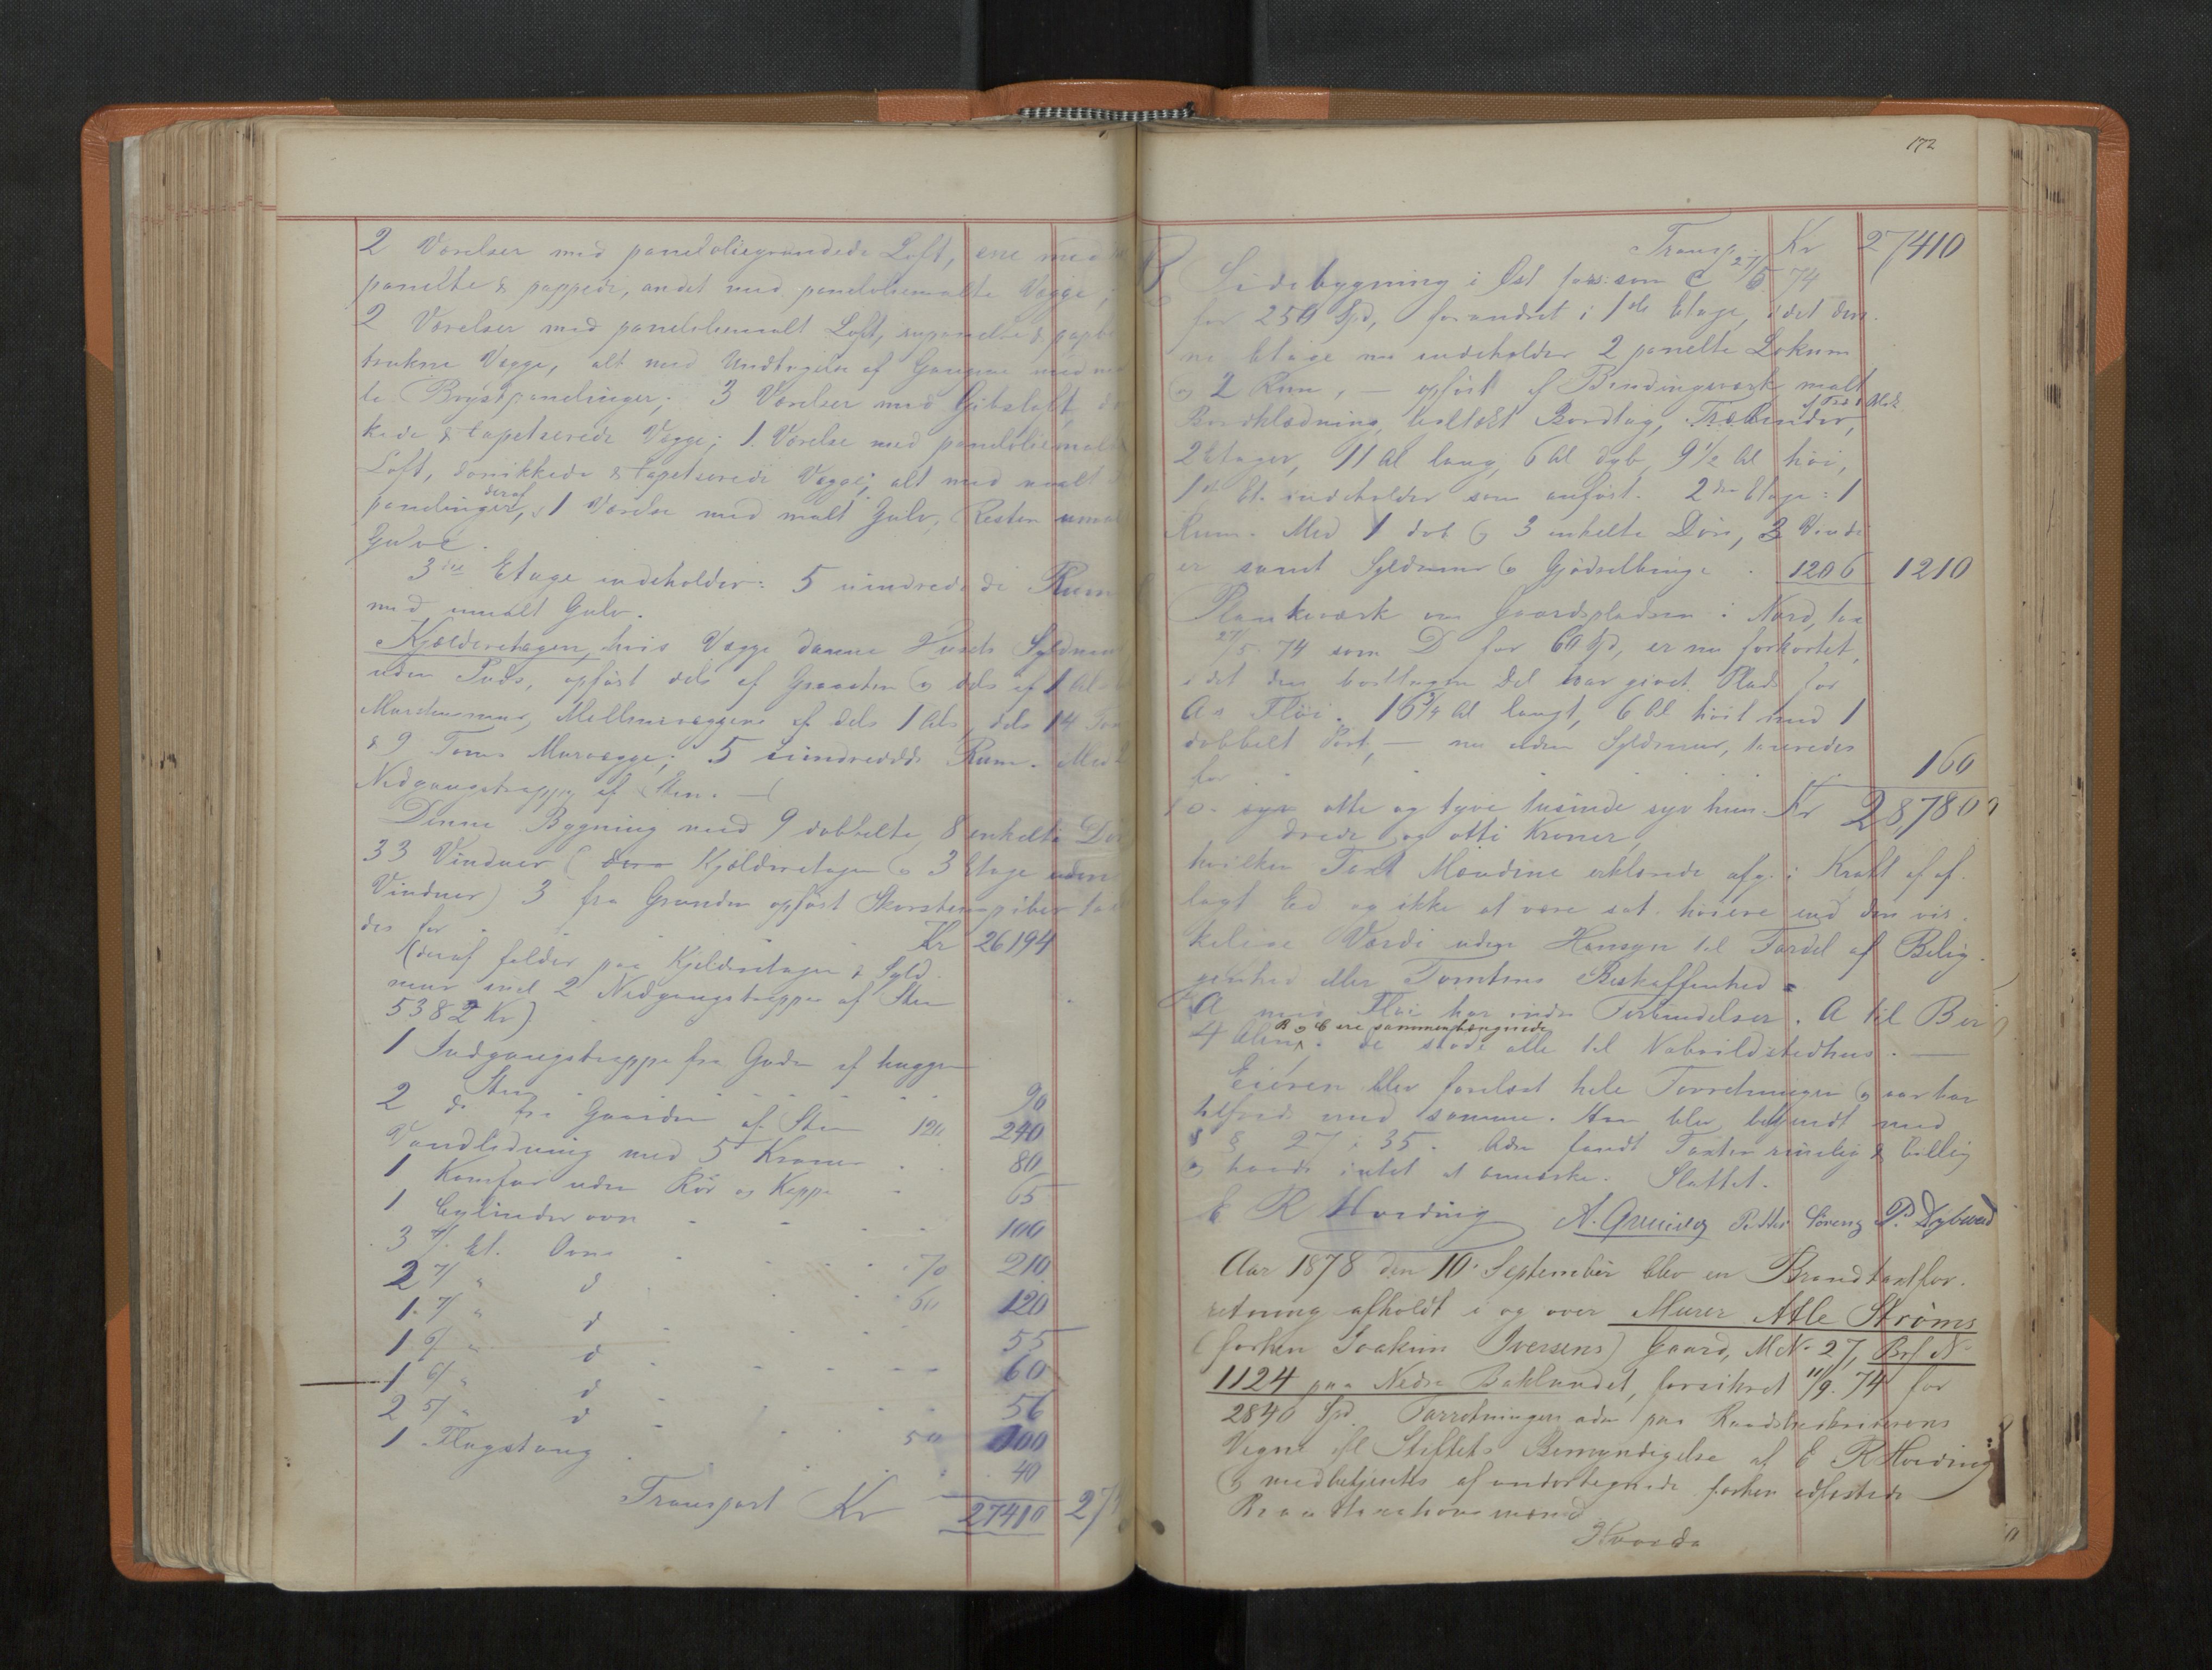 2 Værelser med paneloliegrundede Loft, ene med
panelte & pappede, andet med paneloliemalte Vægge;
2 Værelser med paneloliemalt Loft, & pap
trukne Vægge, alt med Undtagelse af Gangene med
te Brystpanelinger; 3 Værelser med Gibsloft,
kede & tapetserede Vægge; 1 Værelse med paneloliemalt
Loft, & tapetserede Vægge; alt med malt
panelinger, deraf 1 Værelse med malt Gulv, Resten umalt
Gulve.
3die Etage indeholder: 5 uindredede Rum
med umalt Gulv.
Kjælderetagen, hvis Vægge danne Husets Syldmur
uden Puds, opført dels af Graasten og dels af 1 Al
Murstensmur, Mellemvæggene af dels 1 Als, dels 14 Tom
& 9 Toms Murvægge; 5 uindredede Rum. Med
Nedgangstrappe af Sten.
Denne Bygning med 9 dobbelte, 8 enkelte Dør
33 Vinduer (Kjælderetagen og 3 Etage uden
Vinduer) 3 fra Grunden opført Skorstenspiber
des for Kr 26194
(deraf falder paa Kjelderetagen & Syld-
mur incl 2 Nedgangstrapper af Sten
5382 Kr)
1 Indgangstrappe fra Gaden af huggen
Sten 90
2 do fra Gaarden af Sten 120 240
Vandledning med 5 Kraner 80
1 Komfur uden Rør og Kappe 65
1 Cylinderovn 100
3 Et. Ovne 70 210
2 " d 60 120
1 " d 55
1 6/ " d 60
1 6/ " d 56
2 5/ " d 50 100
1 Flagstang 40
Transport Kr 27410 27
172
Transp. Kr 27410
B Sidebygning i Øst som C 27/5 74
for 250 Spd, forandret i 1ste Etage, idet den-
ne Etage nu indeholder 2 panelte Lokum
og 2 Rum, — opført af Bindingsværk malt
Bordklædning, Bordtag, af Træ & Blik
2 Etager, 11 Al lang, 6 Al dyb, 9 1/2 Al høi,
1st Et. indeholder som anført. 2den Etage: 1
Rum. Med 1 dob og 3 enkelte Døre, 3 Vindu
er samt Syldmur og Gjødselbinge 1206 1210
Plankeværk om Gaardspladsen i Nord, tax
27/5 74 som D for 60 Spd, er nu forkortet,
idet den borttagne Del har givet Plads for
As Fløi. 16 3/4 Al langt, 6 Al høit med 1
dobbelt Port, — nu uden Syldmur, taxeredes
for 160
otte og tyve tusinde syv hun- Kr 28,780
drede og otti Kroner,
hvilken Taxt Mændene erklærede afg. i Kraft af af-
lagt Ed og ikke at være sat høiere end den vir-
kelige Værdi uden Hensyn til Fordel af Belig-
genhed eller Tomtens Beskaffenhed.
A med Fløi har indre Forbindelser. A til B er
4 Alen, B og C ere sammenhængende de støde alle til Nabo
Eieren blev forelæst hele Forretningen og var
tilfreds med samme. Han blev bekjendt med
§ § 27 i 35. fandt Taxten rimelig & billig
og havde intet at anmærke. Sluttet.
E R Hveding Petter Sørensen P. Dybwad
Aar 1878 den 10 September blev en Brandtaxtfor-
retning afholdt i og over Murer Atle Strøms
(forhen Joakim Iversens) Gaard, M N. 27, Brf N.
1124 paa Nedre Baklandet, forsikret 11/9. 74 for
2840 Spd. Forretningen adm paa Raadstueskriverens
Vegne ifl Stiftets Bemyndigelse af E R Hveding
og medbetjentes af undertegnede forhen edfæstede
Brandtaxationsmænd.